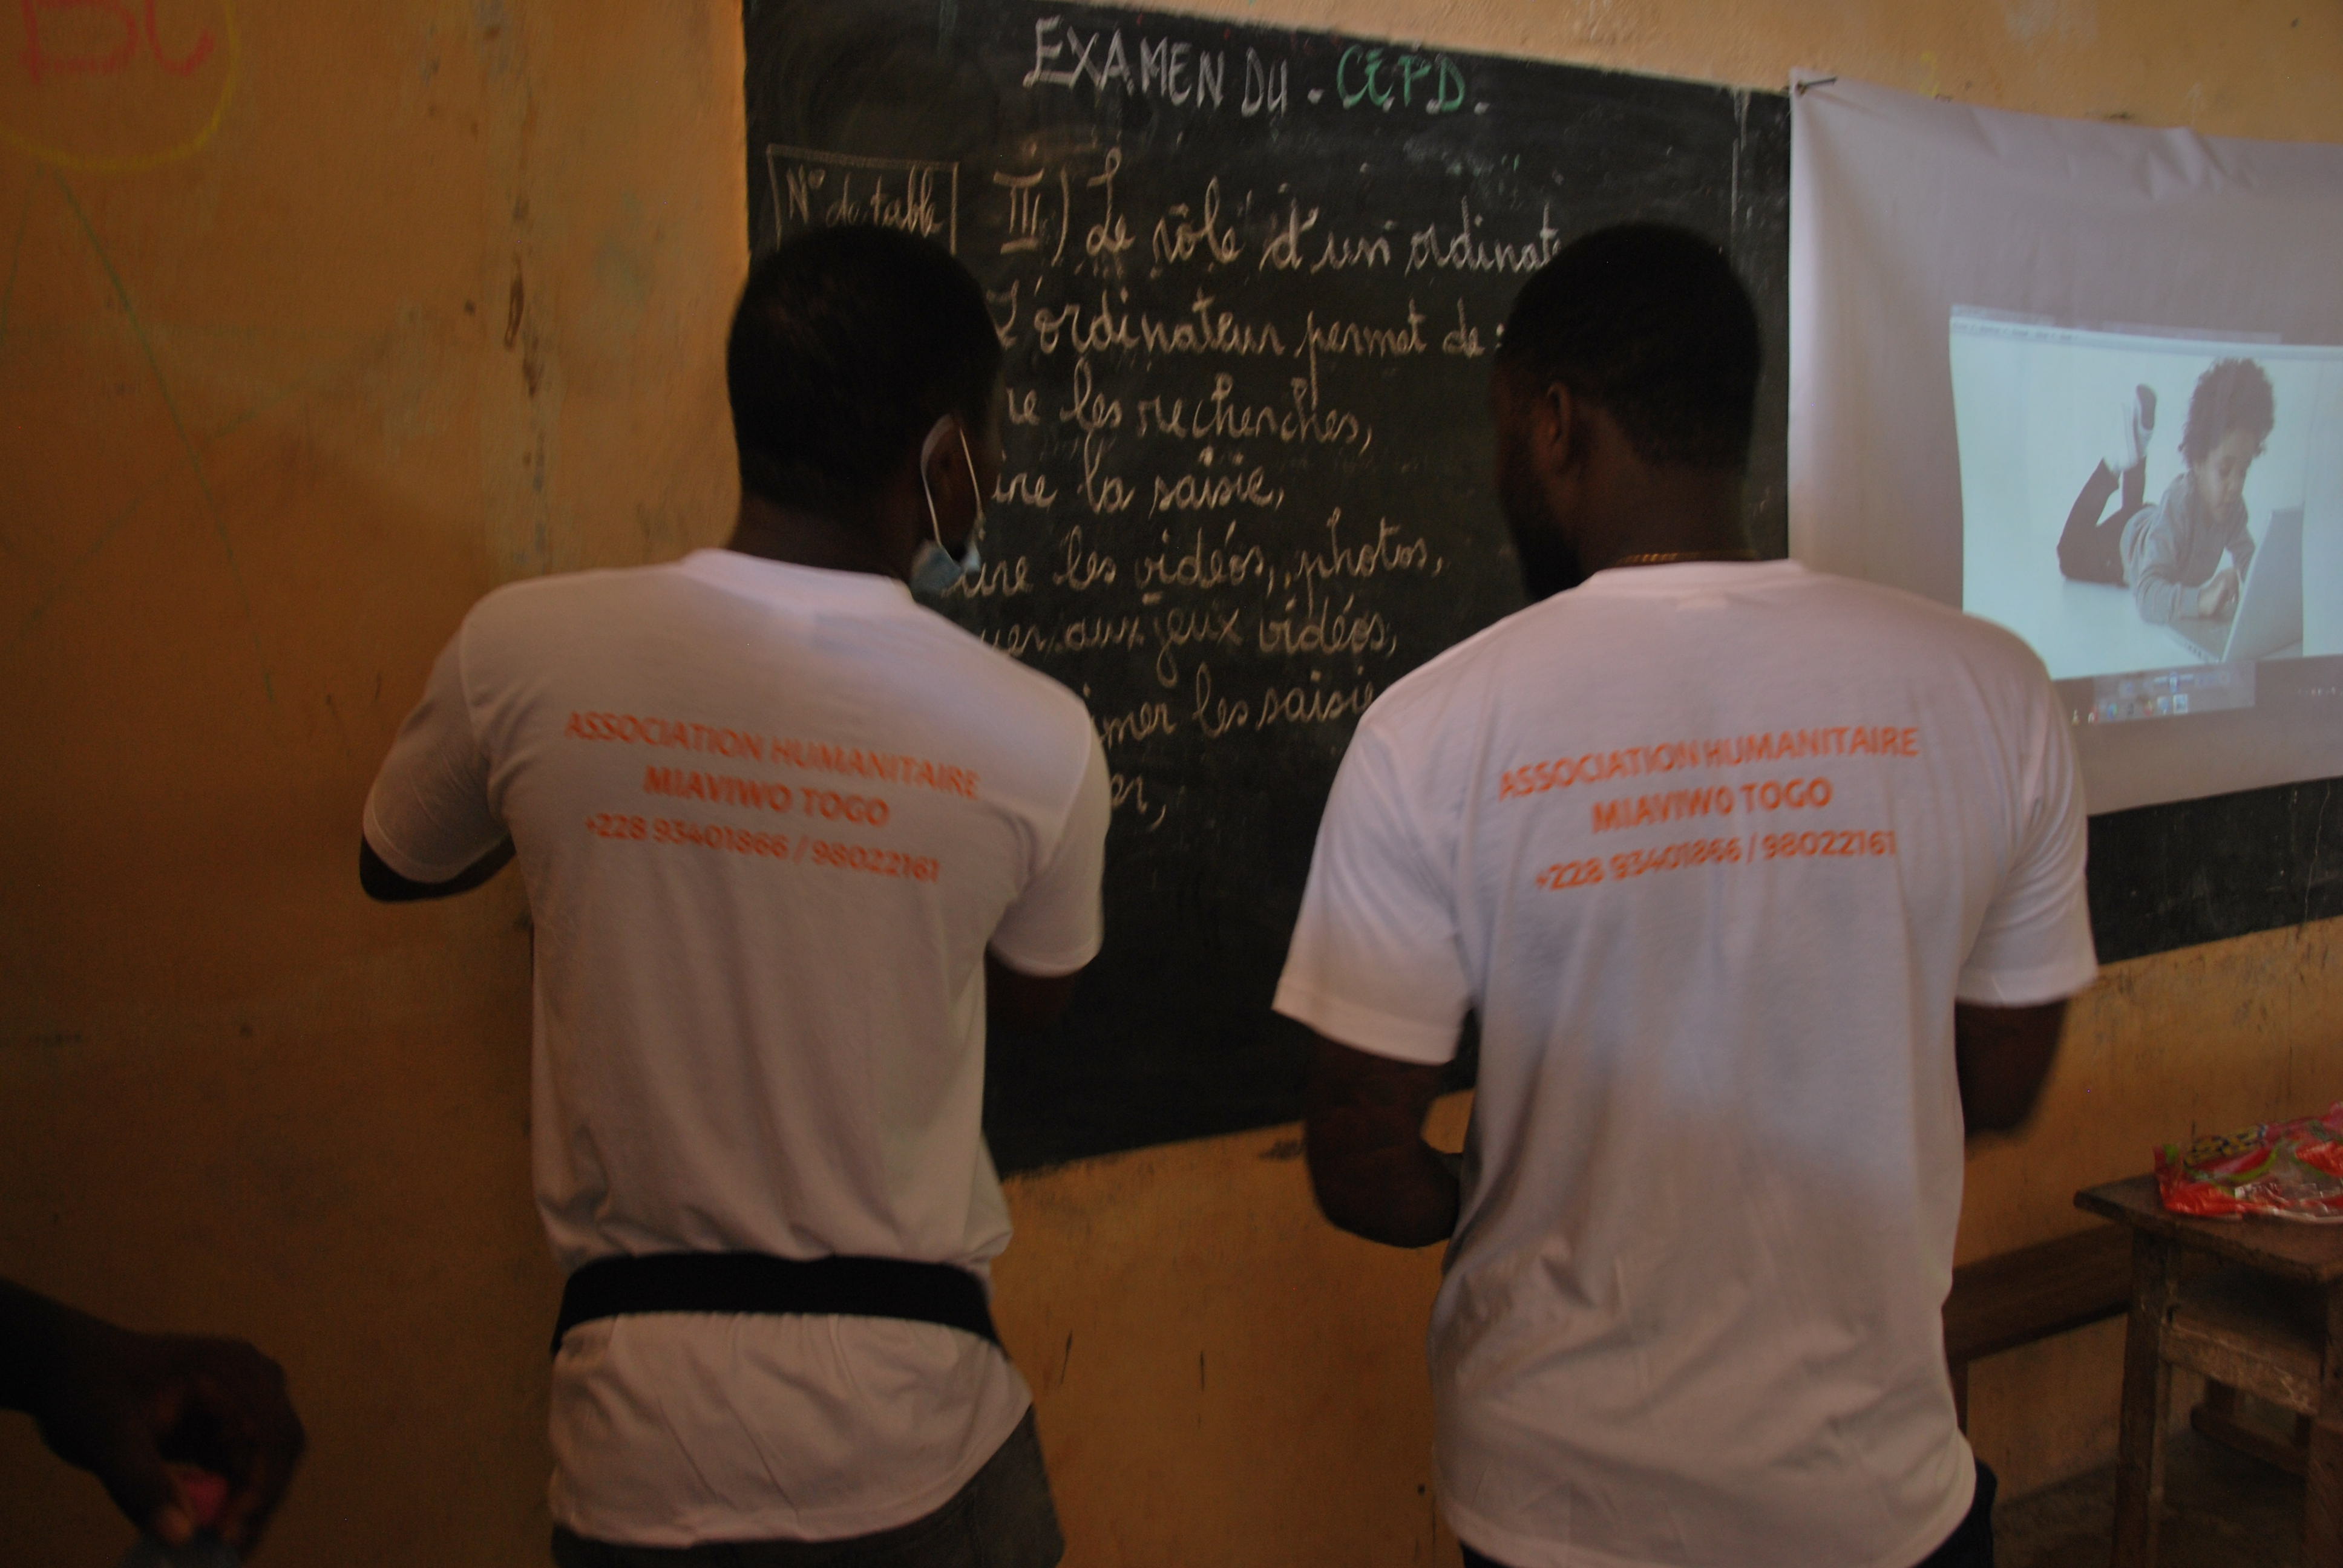 EXAMEN DU - CEPD -
N° de table
III) Le rôle d'un ordinat
L'ordinateur permet de :
re les recherches,
ire la saisie,
ire les vidéos, photos,
uer aux jeux vidéos,
imer les saisie
er,
ASSOCIATION HUMANITAIRE
MIAVIWO TOGO
+228 93401866 / 98022161
ASSOCIATION HUMANITAIRE
MIAVIWO TOGO
+228 93401866 / 98022161